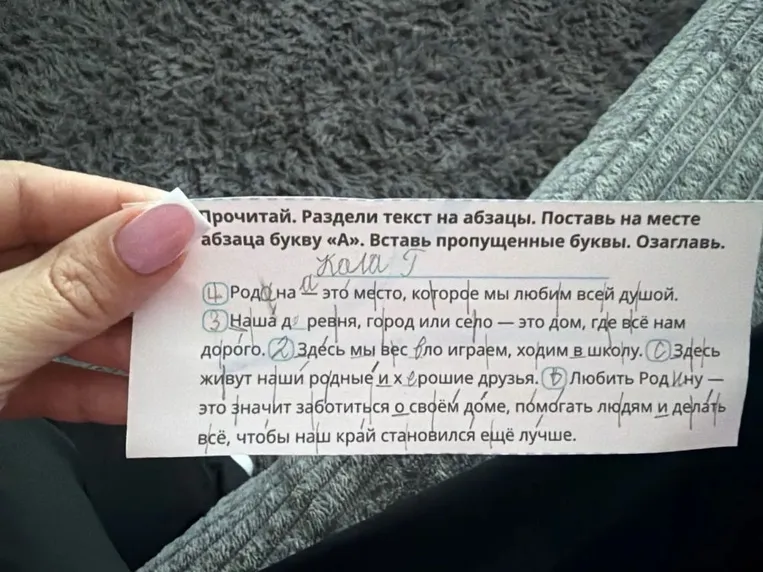 Прочитай. Раздели текст на абзацы. Поставь на месте
абзаца букву «А». Вставь пропущенные буквы. Озаглавь.
Кола Г
Род на — это место, которое мы любим всей душой.
3 Наша д ревня, город или село — это дом, где всё нам
дорого. 2 Здесь мы вес ло играем, ходим в школу. Здесь
живут наши родные и х рошие друзья. Любить Род ну —
это значит заботиться о своём доме, помогать людям и делать
всё, чтобы наш край становился ещё лучше.